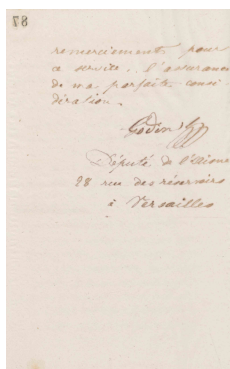 87
remerciements pour
ce service, l'assurance
de ma parfaite consi
dération.
Godin
Député de l'Aisne
28 rue des réservoirs
à Versailles